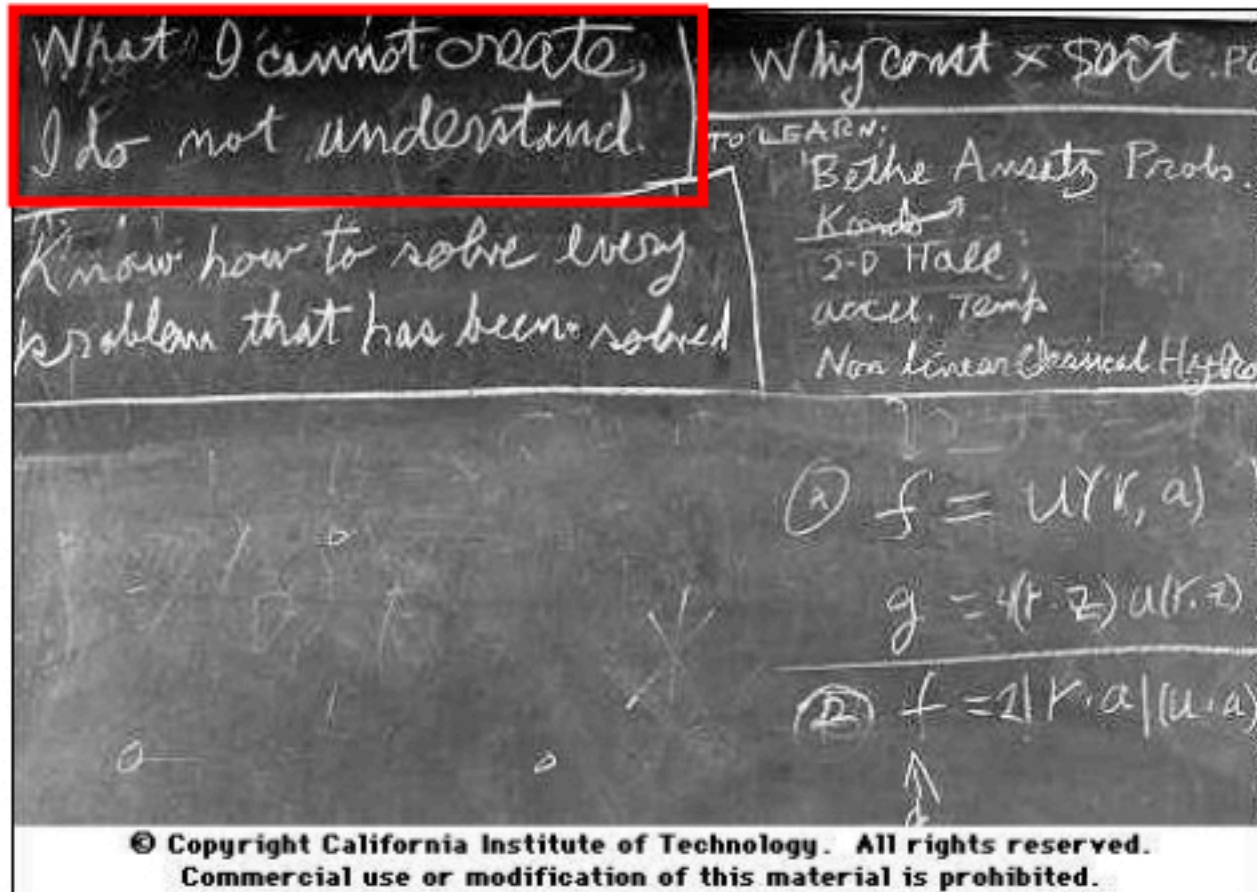 What I cannot create,
I do not understand.
Know how to solve every
problem that has been solved
Why const × sort . PO
TO LEARN:
Bethe Ansatz Probs.
Kondo
2-D Hall
accel. Temp
Non linear Classical Hydro
f = U(r, a)
g = 4(r·z) u(r·z)
f = 2|r·a|(u·a)
© Copyright California Institute of Technology. All rights reserved.
Commercial use or modification of this material is prohibited.